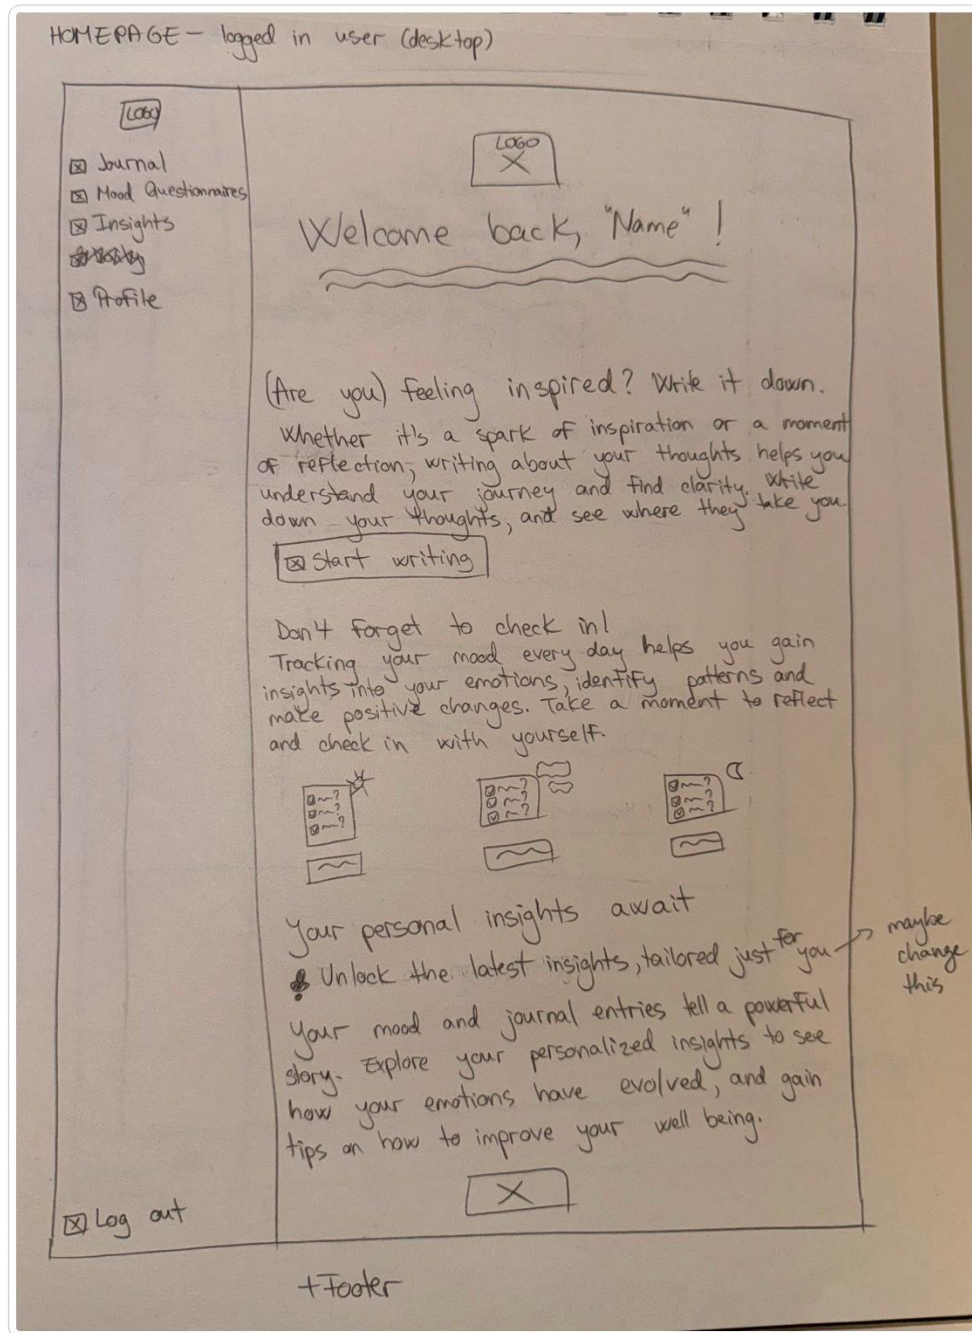 HOMEPAGE - logged in user (desktop)
LOGO
Journal
Mood Questionnaires
Insights
Profile
Log out
LOGO
Welcome back, "Name" !
(Are you) feeling inspired? Write it down.
Whether it's a spark of inspiration or a moment
of reflection, writing about your thoughts helps you
understand your journey and find clarity. Write
down your thoughts, and see where they take you.
Start writing
Don't forget to check in!
Tracking your mood every day helps you gain
insights into your emotions, identify patterns and
make positive changes. Take a moment to reflect
and check in with yourself.
Your personal insights await
Unlock the latest insights, tailored just for you
maybe
change
this
Your mood and journal entries tell a powerful
story. Explore your personalized insights to see
how your emotions have evolved, and gain
tips on how to improve your well being.
+Footer